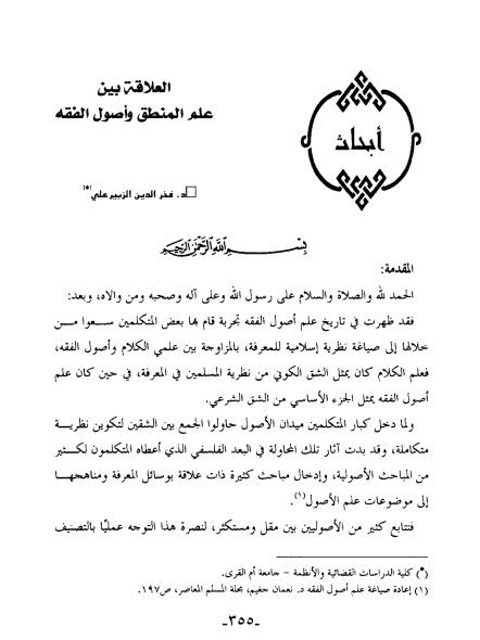 العلاقة بين
علم المنطق وأصول الفقه
أبحاث
د. فخر الدين الزبير علي(*)
بِسْمِ اللَّهِ الرَّحْمَنِ الرَّحِيمِ
المقدمة:
الحمد لله والصلاة والسلام على رسول الله وعلى آله وصحبه ومن والاه، وبعد:
فقد ظهرت في تاريخ علم أصول الفقه تجربة قام بها بعض المتكلمين سعوا من
خلالها إلى صياغة نظرية إسلامية للمعرفة، بالمزاوجة بين علمي الكلام وأصول الفقه،
فعلم الكلام كان يمثل الشق الكوني من نظرية المسلمين في المعرفة، في حين كان علم
أصول الفقه يمثل الجزء الأساسي من الشق الشرعي.
ولما دخل كبار المتكلمين ميدان الأصول حاولوا الجمع بين الشقين لتكوين نظرية
متكاملة، وقد بدت آثار تلك المحاولة في البعد الفلسفي الذي أعطاه المتكلمون لكثير
من المباحث الأصولية، وإدخال مباحث كثيرة ذات علاقة بوسائل المعرفة ومناهجها
إلى موضوعات علم الأصول(١).
فتتابع كثير من الأصوليين بين مقل ومستكثر، لنصرة هذا التوجه عمليًا بالتصنيف
(*) كلية الدراسات القضائية والأنظمة – جامعة أم القرى.
(١) إعادة صياغة علم أصول الفقه د. نعمان جغيم، مجلة المسلم المعاصر، ص١٩٧.
-٣٥٥-